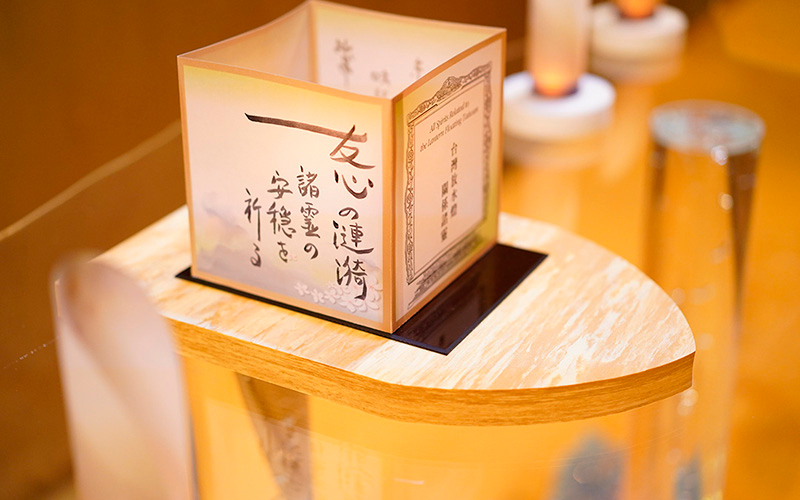 友心の漣漪
諸霊の
安穏を
祈る
All Spirits Related to
the Lantern Floating Taiwan
台灣放水燈
關係諸靈